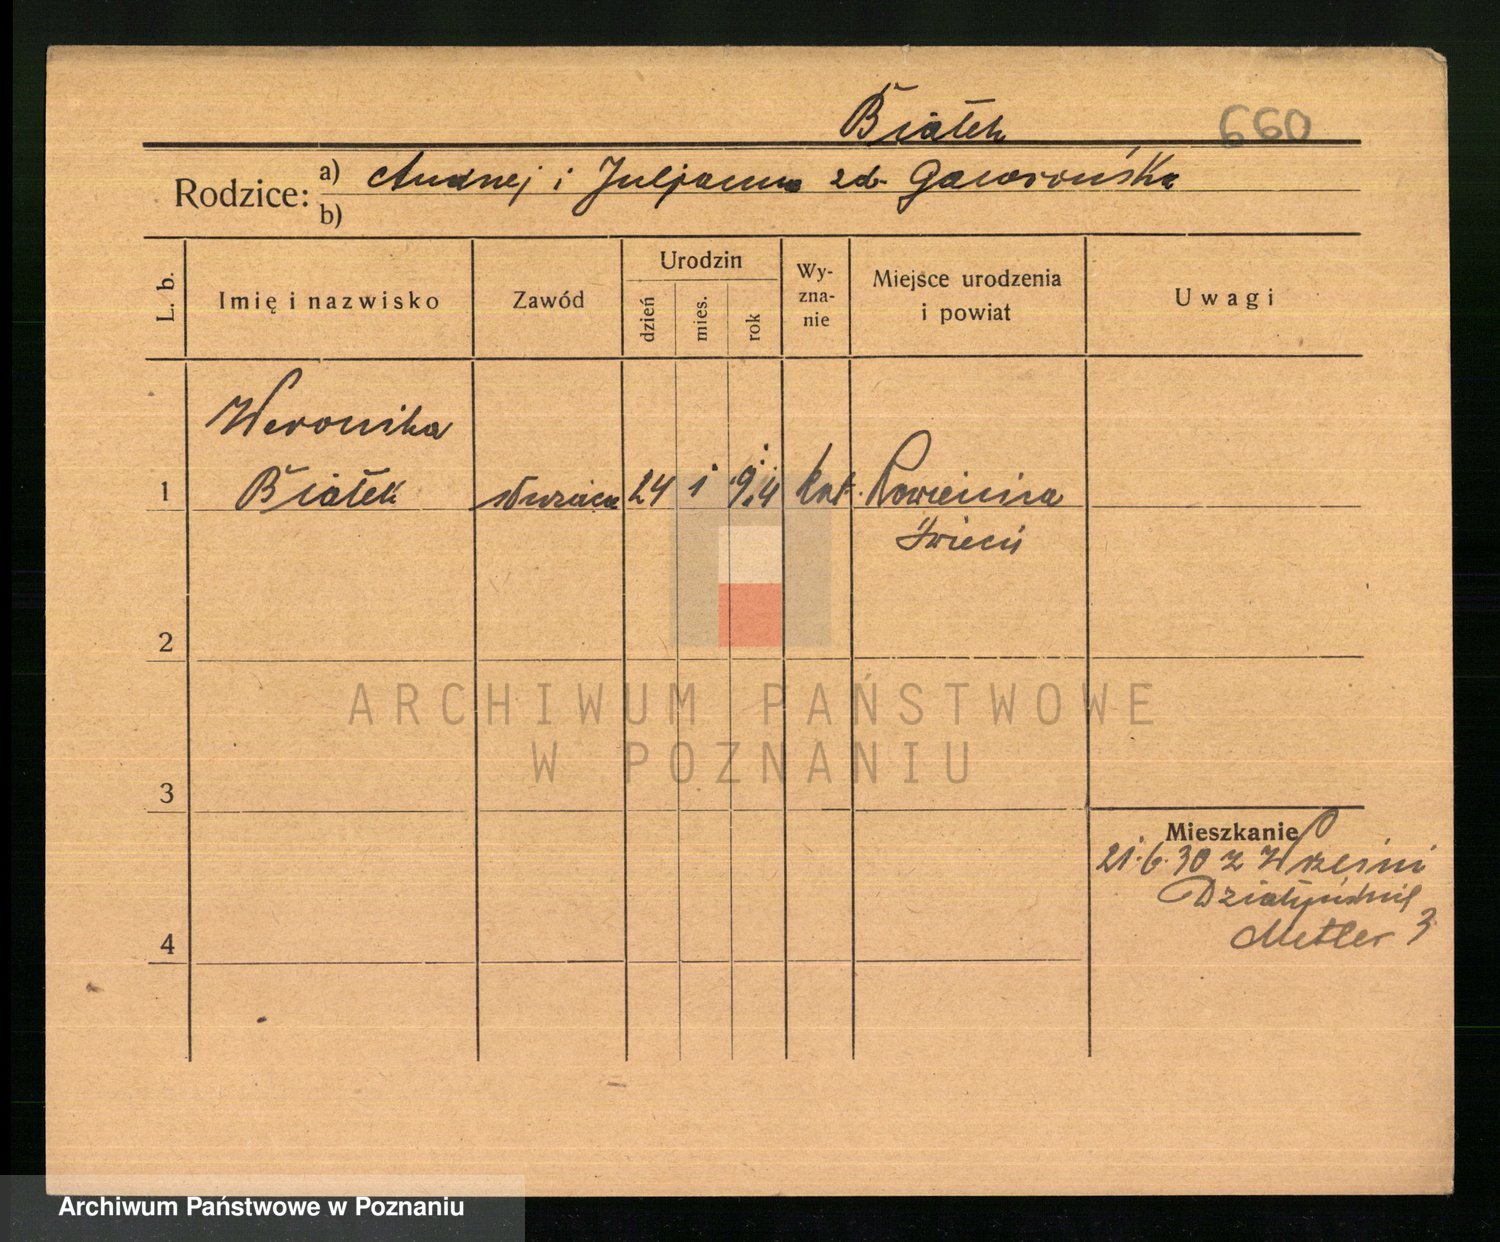 Białek 660
Rodzice: a) Andrzej i Juljanna zd. Gaworońska
b)
L. b. Imię i nazwisko Zawód Urodzin dzień mies. rok Wy-zna-nie Miejsce urodzenia i powiat Uwagi
Weronika
1 Białek służąca 24 1 kat.
2
3
4
Mieszkanie
21.6.30 z Wrześni
Metler 3
ARCHIWUM PAŃSTWOWE
W POZNANIU
Archiwum Państwowe w Poznaniu